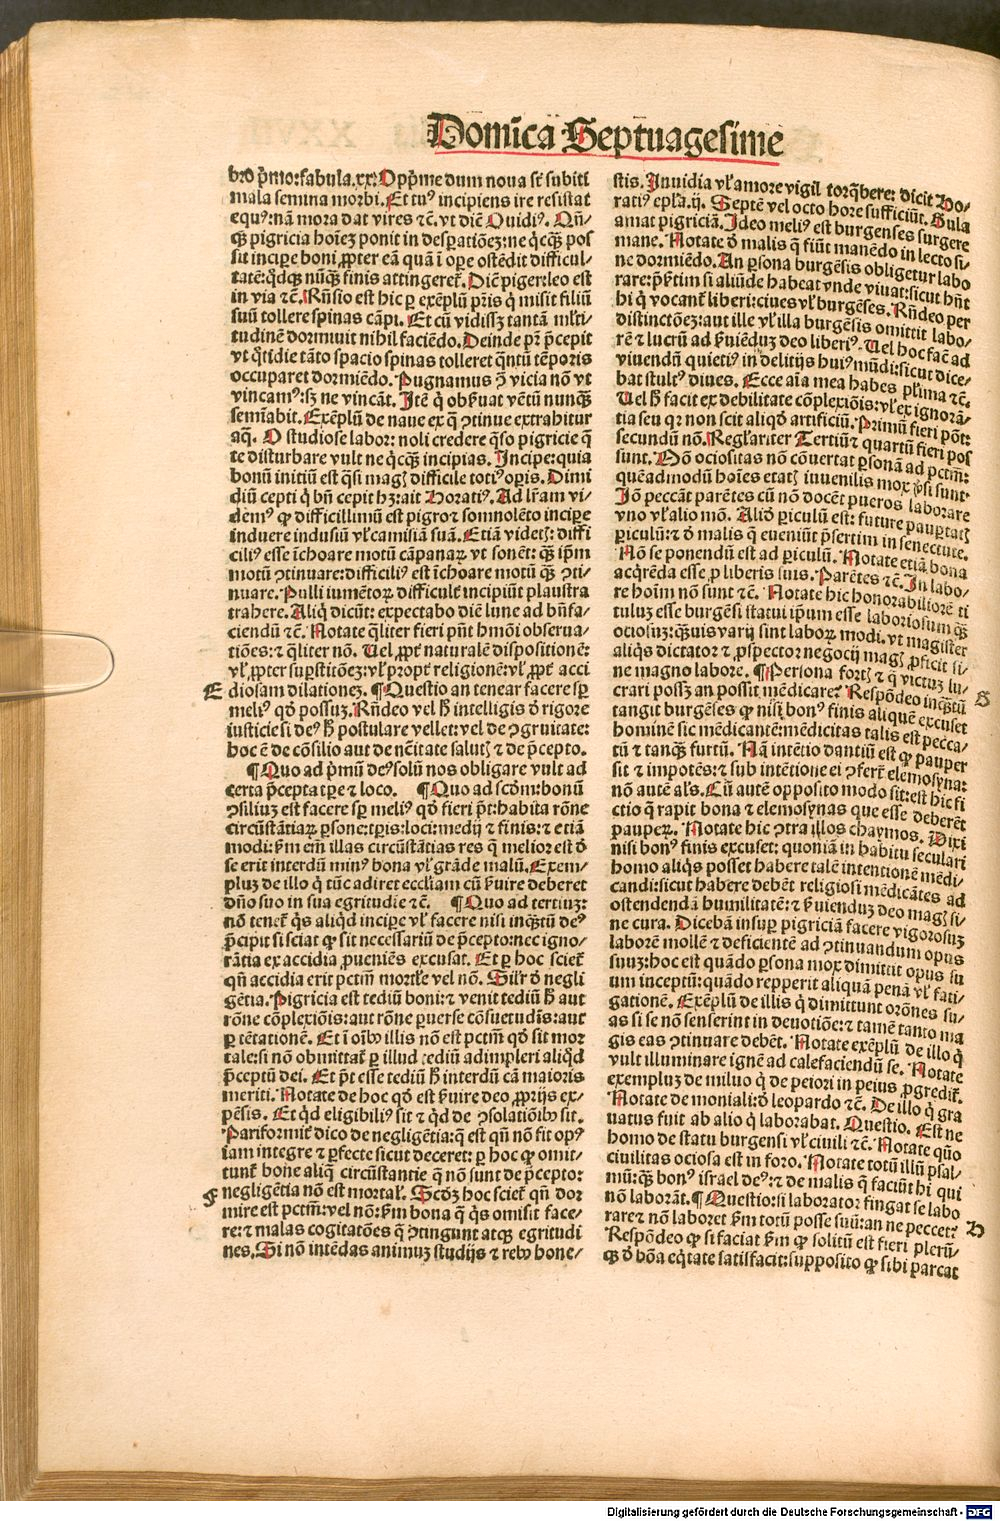 Domīca Septuagesime
bro p̄mo: fabula.xx: Opp̄me dum noua sūt subiti
mala semina morbi. Et tu⁹ incipiens ire resistat
equ⁹: nā mora dat vires ⁊c̄. vt diē Ouidi⁹. Qn̄/
q̄ꝫ pigricia hoīeꝫ ponit in desꝑatiōeꝫ: ne q̄cq̄ꝫ pos
sit inciꝑe boni, ꝓpter eā quā ī oꝑe ostēdit difficul
tatē: q̄dq̄ꝫ nūq̄ꝫ finis attingeret̄. Diē piger: leo est
in via ⁊c̄. Rn̄sio est hic ꝑ exēplū pr̄is q̄ misit filiū
suū tollere spinas cāpi. Et cū vidissꝫ tantā ml̄ti/
tudinē dormiuit nihil faciēdo. Deinde pr̄ p̄cepit
vt q̄tidie tāto spacio spinas tolleret q̄ntū tēporis
occuparet dormiēdo. Pugnamus ꝯ̄ vicia nō vt
vincam⁹: sꝫ ne vincāt. Itē q̄ obẜuat vētū nunq̄ꝫ
semīabit. Exēplū de naue ex q̄ ꝯtinue extrahitur
aq̄. O studiose labor: noli credere q̄so pigricie q̄
te disturbare vult ne q̄cq̄ꝫ incipias. Incipe: quia
bonū initiū est q̄si magꝭ difficile toti⁹ oꝑis. Dimi
diū cepti q̄ bn̄ cepit hꝫ: ait Horati⁹. Ad lr̄am vi/
dem⁹ ꝙ difficillimū est pigro ⁊ somnolēto inciꝑe
induere indusiū vl̓ camisiā suā. Etiā videtꝭ: diffi
cili⁹ esse īchoare motū cāpanaꝝ vt sonēt: q̄ꝫ ip̄m
motū ꝯtinuare: difficili⁹ est īchoare motū q̄ꝫ ꝯti/
nuare. Pulli iumētoꝝ difficult̄ incipiūt plaustra
trahere. Aliq̄ dicūt: expectabo diē lune ad bn̄fa/
ciendū ⁊c̄. Notate q̄liter fieri pn̄t hmōi obserua/
tiōes: ⁊ q̄liter nō. Uel ꝓpt̄ naturalē dispositionē:
vl̓ ꝓpter suꝑstitiōeꝫ: vl̓ propt̄ religionē: vl̓ ꝓpt̄ acci
E diosam dilationeꝫ. ¶Questio an tenear facere sꝑ
meli⁹ qd̄ possuꝫ. Rn̄deo vel h̄ intelligis d̄ rigore
iusticie si de⁹ h̄ postulare vellet: vel de ꝯgruitate:
hoc ē de cōsilio aut de nēitate salutꝭ ⁊ de p̄cepto.
¶Quo ad p̄mū de⁹ solū nos obligare vult ad
certa p̄cepta tꝑe ⁊ loco. ¶Quo ad scd̄m: bonū
ꝯsiliuꝫ est facere sꝑ meli⁹ qd̄ fieri pt̄: habita rōne
circūstātiaꝝ ꝑsone: tꝑis: loci: medij ⁊ finis: ⁊ etiā
modi: ẜm em̄ illas circūstātias res q̄ melior est d̄
se erit interdū min⁹ bona vl̓ grāde malū. Exem/
pluꝫ de illo q̄ tūc adiret eccl̓iam cū ẜuire deberet
dn̄o suo in sua egritudie ⁊c̄. ¶Quo ad tertiuꝫ:
nō tenet̄ q̄s aliqd̄ inciꝑe vl̓ facere nisi inq̄ꝫtū de⁹
p̄cipit si sciat ꝙ sit necessariū de p̄cepto: nec igno/
rātia ex accidia ꝓueniēs excusat. Et ꝑ hoc sciet̄
qn̄ accidia erit pctm̄ mortl̓e vel nō. Sil̓r d̄ negli
gētia. Pigricia est tediū boni: ⁊ venit tediū h̄ aut
rōne cōplexiōis: aut rōne ꝑuerse cōsuetudīs: aut
ꝑ tētationē. Et ī oībꝰ illis nō est pctm̄ qd̄ sit mor
tale: si nō obmittat̄ ꝑ illud tediū adimpleri aliqd̄
p̄ceptū dei. Et pt̄ esse tediū h̄ interdū cā maioris
meriti. Notate de hoc qd̄ est ẜuire deo ꝓprijs ex/
pēsis. Et q̄d eligibili⁹ sit ⁊ q̄d de ꝯsolatiōībꝰ sit.
Pariformit̄ dico de negligētia: q̄ est qn̄ nō fit op⁹
iam integre ⁊ ꝑfecte sicut deceret: ꝑ hoc ꝙ omit/
tunt̄ bone aliq̄ circūstantie q̄ nō sunt de p̄cepto:
F negligētia nō est mortal̓. Scd̄ꝫ hoc sciet̄ qn̄ dor
mire est pctm̄: vel nō: ẜm bona q̄ q̄s omisit face/
re: ⁊ malas cogitatōes q̄ ꝯtingunt atq̄ꝫ egritudi
nes. Si nō intēdas animuꝫ studijs ⁊ rebꝰ hone/
stis. Inuidia vl̓ amore vigil torq̄bere: dicit Ho/
rati⁹ epl̓a.ij. Septē vel octo hore sufficiūt. Gula
amat pigriciā. Ideo meli⁹ est burgenses surgere
mane. Notate d̄ malis q̄ fiūt manēdo in lecto si/
ne dormiēdo. An ꝑsona burgēsis obligetur labo
rare: p̄ẜtim si aliūde habeat vnde viuat: sicut hn̄t
hi q̄ vocant̄ liberi: ciues vl̓ burgēses. Rn̄deo per
distinctōeꝫ: aut ille vl̓ illa burgēsis omittit labo/
rē ⁊ lucrū ad ẜuiēduꝫ deo liberi⁹. Uel hoc facē ad
viuendū quieti⁹ in delitijs hui⁹ mūdi: sicut dice/
bat stult⁹ diues. Ecce aīa mea habes pl̓ima ⁊c̄.
Uel h̄ facit ex debilitate cōplexiōis: vl̓ ex ignorā/
tia seu qr̄ non scit aliqd̄ artificiū. Primū fieri pōt:
secundū nō. Regl̓ariter Tertiū ⁊ quartū fieri pos
sunt. Nō ociositas nō cōuertat ꝑsonā ad pctm̄:
quēadmodū hoīes etatꝭ iuuenilis mox ip̄si sunt.
Iō peccāt parētes cū nō docēt pueros laborare
vno vl̓ alio mō. Aliō ꝑiculū est: future pauꝑtatꝭ
ꝑiculū: ⁊ d̄ malis q̄ eueniūt p̄sertim in senectute.
Nō se ponendū est ad ꝑiculū. Notate etiā bona
acq̄rēda esse ꝓ liberis suis. Parētes ⁊c̄. In labo/
re hoīm nō sunt ⁊c̄. Notate hic honorabiliorē ti
tuluꝫ esse burgēsi statui ip̄um esse laboriosum q̄ꝫ
ociosuꝫ: q̄ꝫuis varij sint laboꝝ modi. vt magister
aliq̄s dictator ⁊ ꝓspector negocij magꝭ ꝓficit si/
ne magno labore. ¶Persona fortꝭ ⁊ q̄ victuꝫ lu/
G crari possꝫ an possit mēdicare? Respōdeo inq̄ꝫtū
tangit burgēses ꝙ nisi bon⁹ finis aliquē excuset
hominē sic mēdicantē: mēdicitas talis est pecca/
tū ⁊ tanq̄ꝫ furtū. Nā intētio dantiū est ꝙ pauper
sit ⁊ impotēs: ⁊ sub intētione ei ꝯfert̄ elemosyna:
nō autē al̓s. Cū autē opposito modo sit: est hic fi
ctio q̄ rapit bona ⁊ elemosynas que esse deberēt
pauperꝝ. Notate hic ꝯtra illos chaymos. Dixi
nisi bon⁹ finis excuset: quoniā in habitu seculari
homo aliq̄s posset habere talē intentionē mēdi/
candi: sicut habere debēt religiosi mēdicātes ad
ostendendā humilitatē: ⁊ ẜuienduꝫ deo magꝭ si/
ne cura. Dicebā insuꝑ pigriciā facere vigorosuꝫ
laborē mollē ⁊ deficientē ad ꝯtinuandum opus
suuꝫ: hoc est quādo ꝑsona mox dimittit opus su
um inceptū: quādo repperit aliquā penā vl̓ fati/
gationē. Exēplū de illis q̄ dimittunt orōnes su/
as si se nō senserint in deuotiōe: ⁊ tamē tanto ma
gis eas ꝯtinuare debēt. Notate exēplū de illo q̄
vult illuminare ignē ad calefaciendū se. Notate
exempluꝫ de miluo q̄ de peiori in peius ꝓgredit̄.
Notate de moniali: d̄ leopardo ⁊c̄. De illo q̄ gra
uatus fuit ab alio q̄ laborabat. Questio. Est ne
homo de statu burgensi vl̓ ciuili ⁊c̄. Notate quō
ciuilitas ociosa est in foro. Notate totū illū psal/
mū: q̄ꝫ bon⁹ israel de⁹: ⁊ de malis q̄ faciūt hi qui
nō laborāt. ¶Questio: si laborator fingat se labo
H rare ⁊ nō laboret ẜm totū posse suū: an ne peccet?
Respōdeo ꝙ si faciat ẜm ꝙ solitū est fieri plerū/
q̄ꝫ d̄ bōa eq̄tate satisfacit: supposito ꝙ sibi parcat
Digitalisierung gefördert durch die Deutsche Forschungsgemeinschaft - DFG